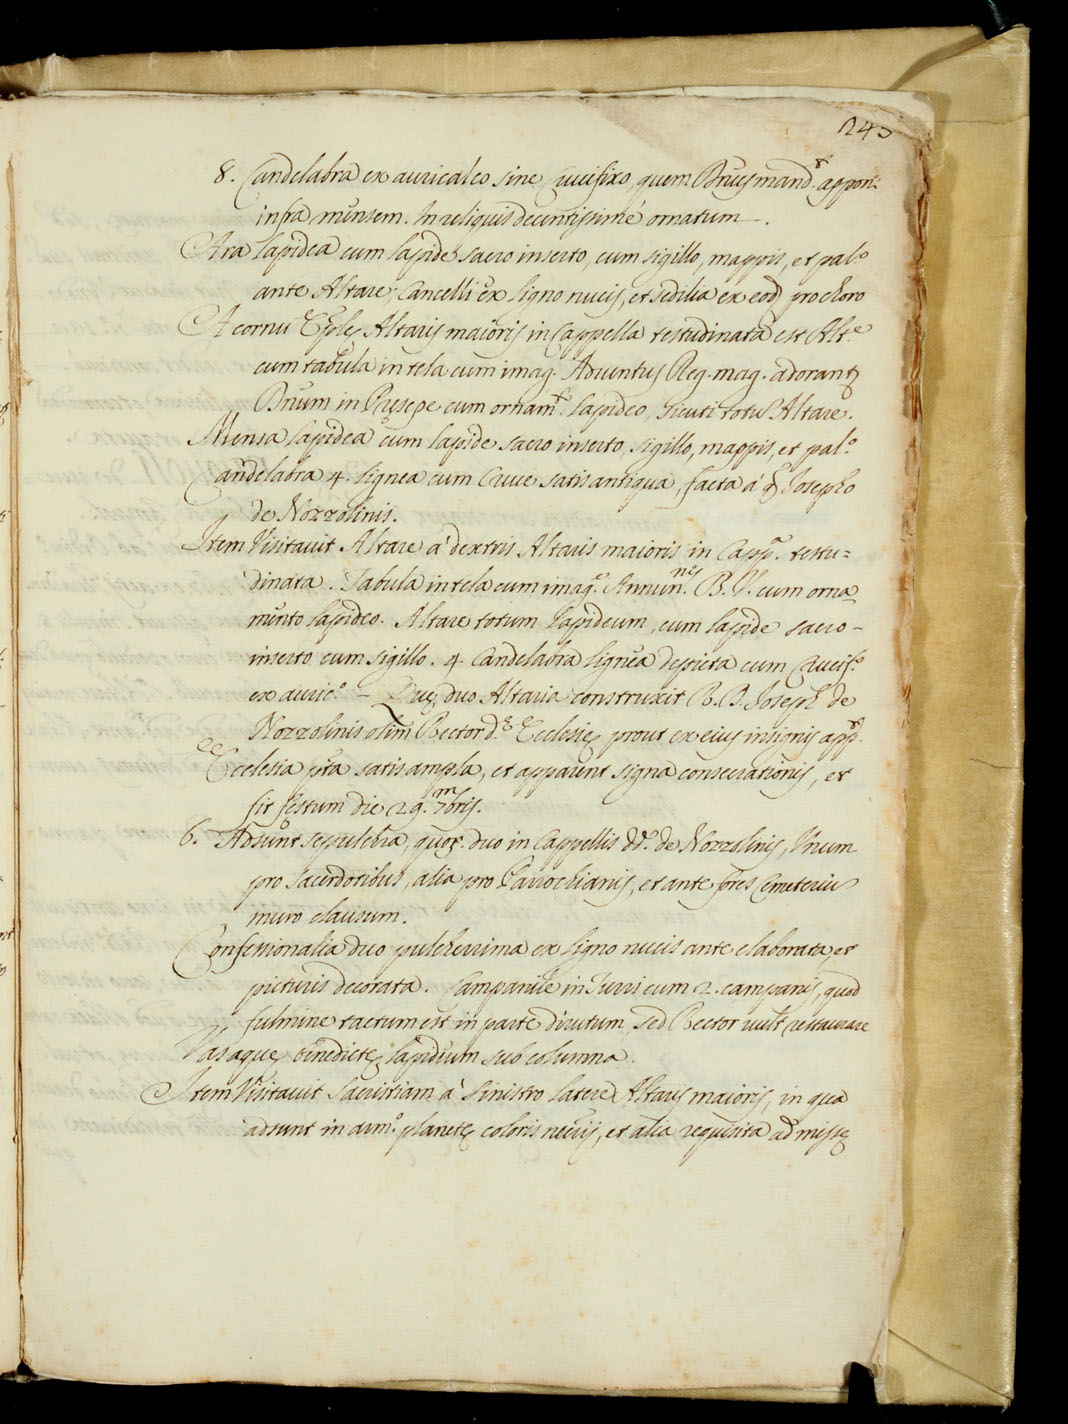 243
8. Candelabra ex auricalco sine Crucifixo, quem D͞nus mand.t appon:
infra mensem. In reliquis decentissimè ornatum.
Ara lapidea cum lapide sacro inserto, cum sigillo, mappis, et pal.º
ante Altare; Cancelli ex ligno nucis, et sedilia ex eod. pro choro
A cornu Ep͞lę Altaris maioris in Cappella testudinata est Alt.e
cum tabula in tela cum imag. Aduentus Reg. mag. adorantę
D͞num in Presepe cum ornam.to lapideo, sicuti totũ Altare.
Mensa lapidea cum lapide sacro inserto, sigillo, mappis, et pal.º
Candelabra 4. lignea cum Cruce satis antiqua, facta á q. Josepho
de Nozzolinis.
Item Visitauit Altare á dextris Altaris maioris in Capp.a testu=
dinata. Tabula in tela cum imag.e Annun.nis B. V. cum orna=
mento lapideo. Altare totum lapideum, cum lapide sacro
inserto cum sigillo. 4 Candelabra lignea depicta cum Crucif.º
ex auric.º – Quę duo Altaria construxit R. D. Joseph de
Nozzolinis olim Rector d.ę Ecclesię prout ex eius insignis app.t
Ecclesia ista satis ampla, et apparent signa consecrationis, et
fit festum die 29. 7mbris.
6. Adsunt sepulchra, quor. duo in Cappellis dd. de Nozzolinis, Vnum
pro Sacerdotibus, alia pro Parrochianis, et ante fores Cemeteriũ
muro clausum.
Confessionalia duo pulcherrima ex ligno nucis ante elaborata, et
picturis decorata. Campanile in Turri cum 2. campanis, quod
fulmine tactum est in parte dirutum, sed Rector uult restaurare
Vas aquę benedictę lapideum sub columna.
Item Visitauit Sacristiam á Sinistro latere Altaris maioris, in qua
adsunt in arm.º planetę coloris neccis, et alia requisita ad missę